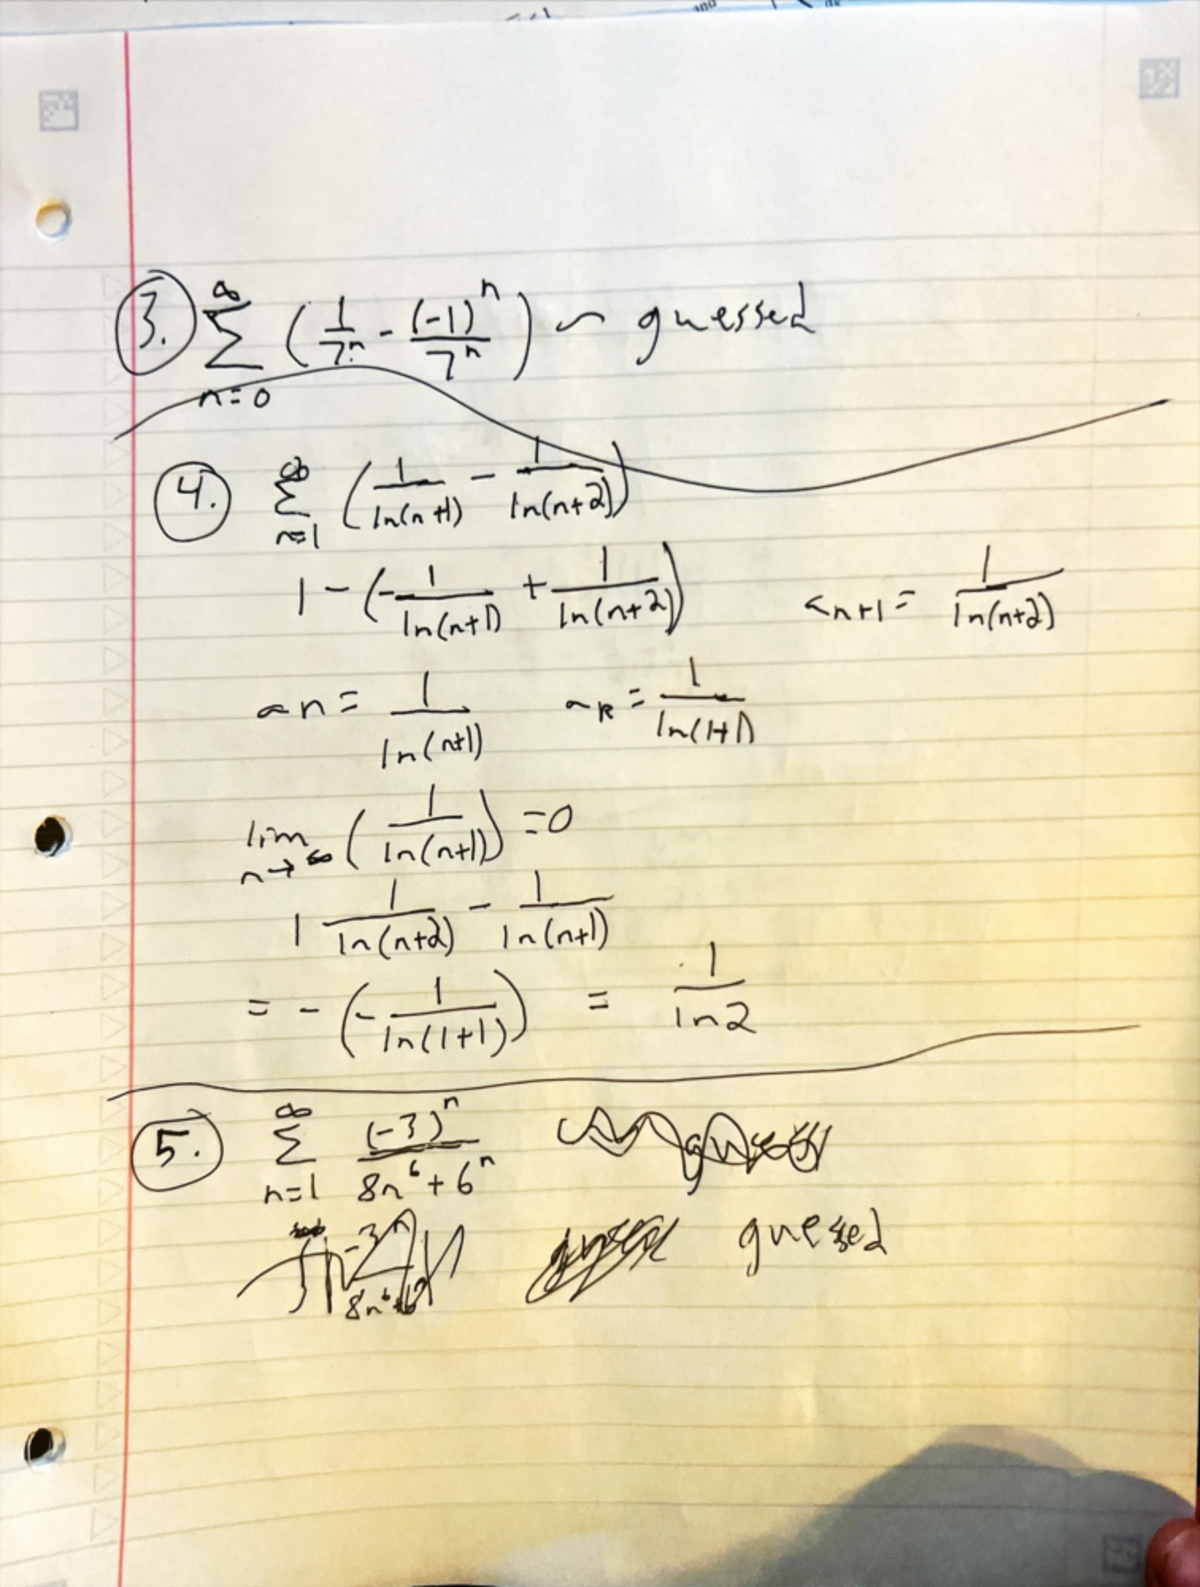 3. ∞ Σ n=0 (1/7^n - (-1)^n/7^n) ~ guessed
4. ∞ Σ n=1 (1/ln(n+1) - 1/ln(n+2))
1 - (-1/ln(n+1) + 1/ln(n+2)) a n+1 = 1/ln(n+2)
an = 1/ln(n+1) ak = 1/ln(1+1)
lim n→∞ (1/ln(n+1)) = 0
1 1/ln(n+2) - 1/ln(n+1)
= -(-1/ln(1+1)) = 1/ln2
5. ∞ Σ n=1 (-3)^n/8n^6+6^n
guessed